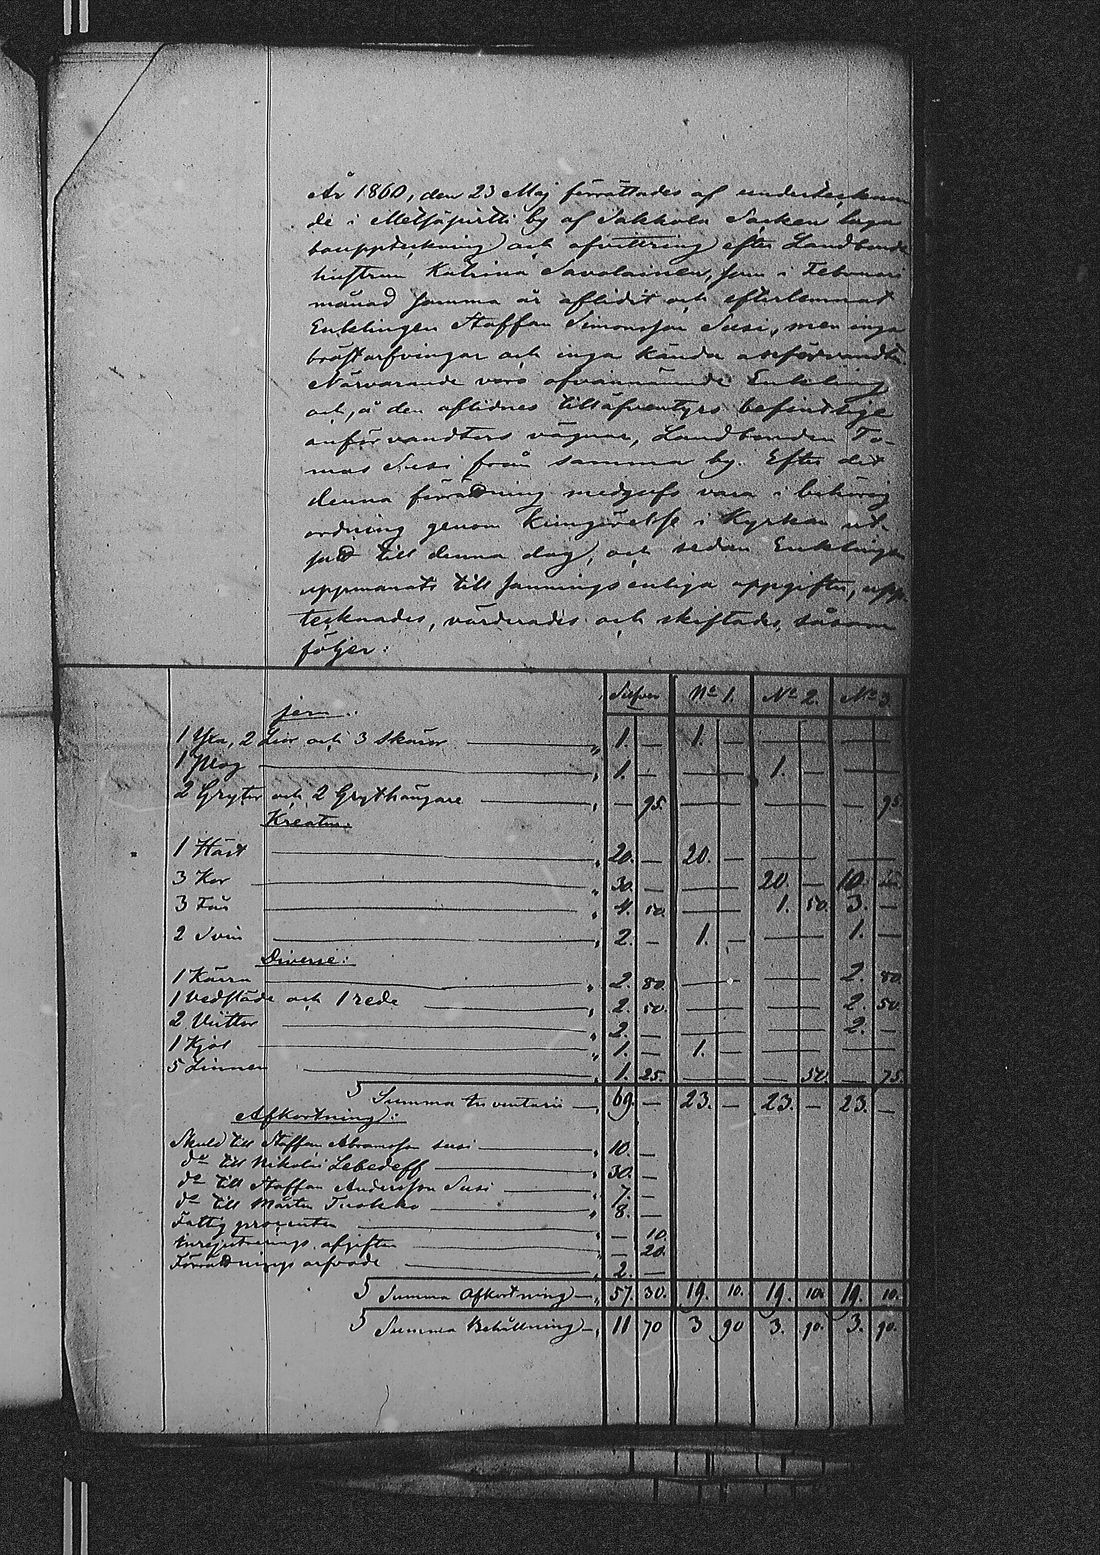 År 1860, den 23 Maj förrättades af underteckna
de i Metsäpirtti by af Sakkola Socken laga
bouppteckning och afvittring efter Landbonde
hustrun Katrina Savolainen, som i Februari
månad samma år aflidit och efterlemnat
Enklingen Staffan Simonsson Susi, men inga
bröstarfvingar och inga kända anförvandter.
Närvarande voro ofvannämnde Enkling
och, å den aflidnes tilläfventyrs befintlige
anförvandters vägnar, Landbonden To-
mas Susi från samma by. Efter det
denna förrättning medgafs vara i behörig
ordning genom kungörelse i Kyrkan ut-
satt till denna dag, och sedan Enklingen
uppmanats till sanningsenliga uppgifter, upp-
tecknades, värderades och skiftades, såsom
följer:
Silfver No 1. No 2. No 3.
jern:
1 Yxa, 2 Liar och 3 skäror " 1. — 1. — — —
1 Plog " 1. — — 1. — —
2 Grytor och 2 Grythängare " — 95. — — — 95.
Kreatur:
1 Häst " 20. — 20. — — —
3 Kor " 30. — — 20. — 10. —
3 Får " 4. 50. — 1. 50. 3. —
2 Svin " 2. — 1. — — 1. —
Diverse:
1 Kärra " 2. 80. — — 2. 80.
1 Vedsläde och 1 rede " 2. 50. — — 2. 50.
2 Vuttor " 2. — — — 2. —
1 Kjol " 1. — 1. — — —
5 Linnen " 1. 25. — — 50. — 75.
Summa Inventarii " 69. — 23. — 23. — 23. —
Afkortning:
Skuld till Staffan Abramsson Susi " 10. —
do till Nikolai Lebedeff " 30. —
do till Staffan Andersson Susi " 7. —
do till Mårten Tuokko " 8. —
Fattig procenten " — 10.
Inregistrerings afgiften " — 20.
Förrättnings arfvode " 2. —
Summa Afkortning " 57. 30. 19. 10. 19. 10. 19. 10.
Summa Behållning " 11 70 3 90 3. 90. 3. 90.